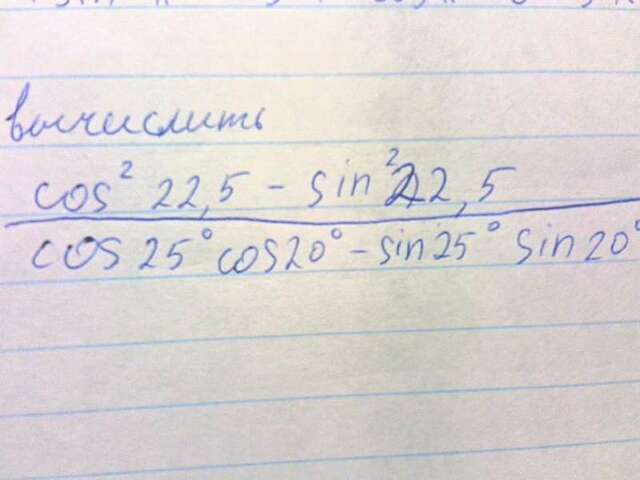 вычислить
cos² 22,5 - sin² 22,5
cos 25° cos 20° - sin 25° sin 20°